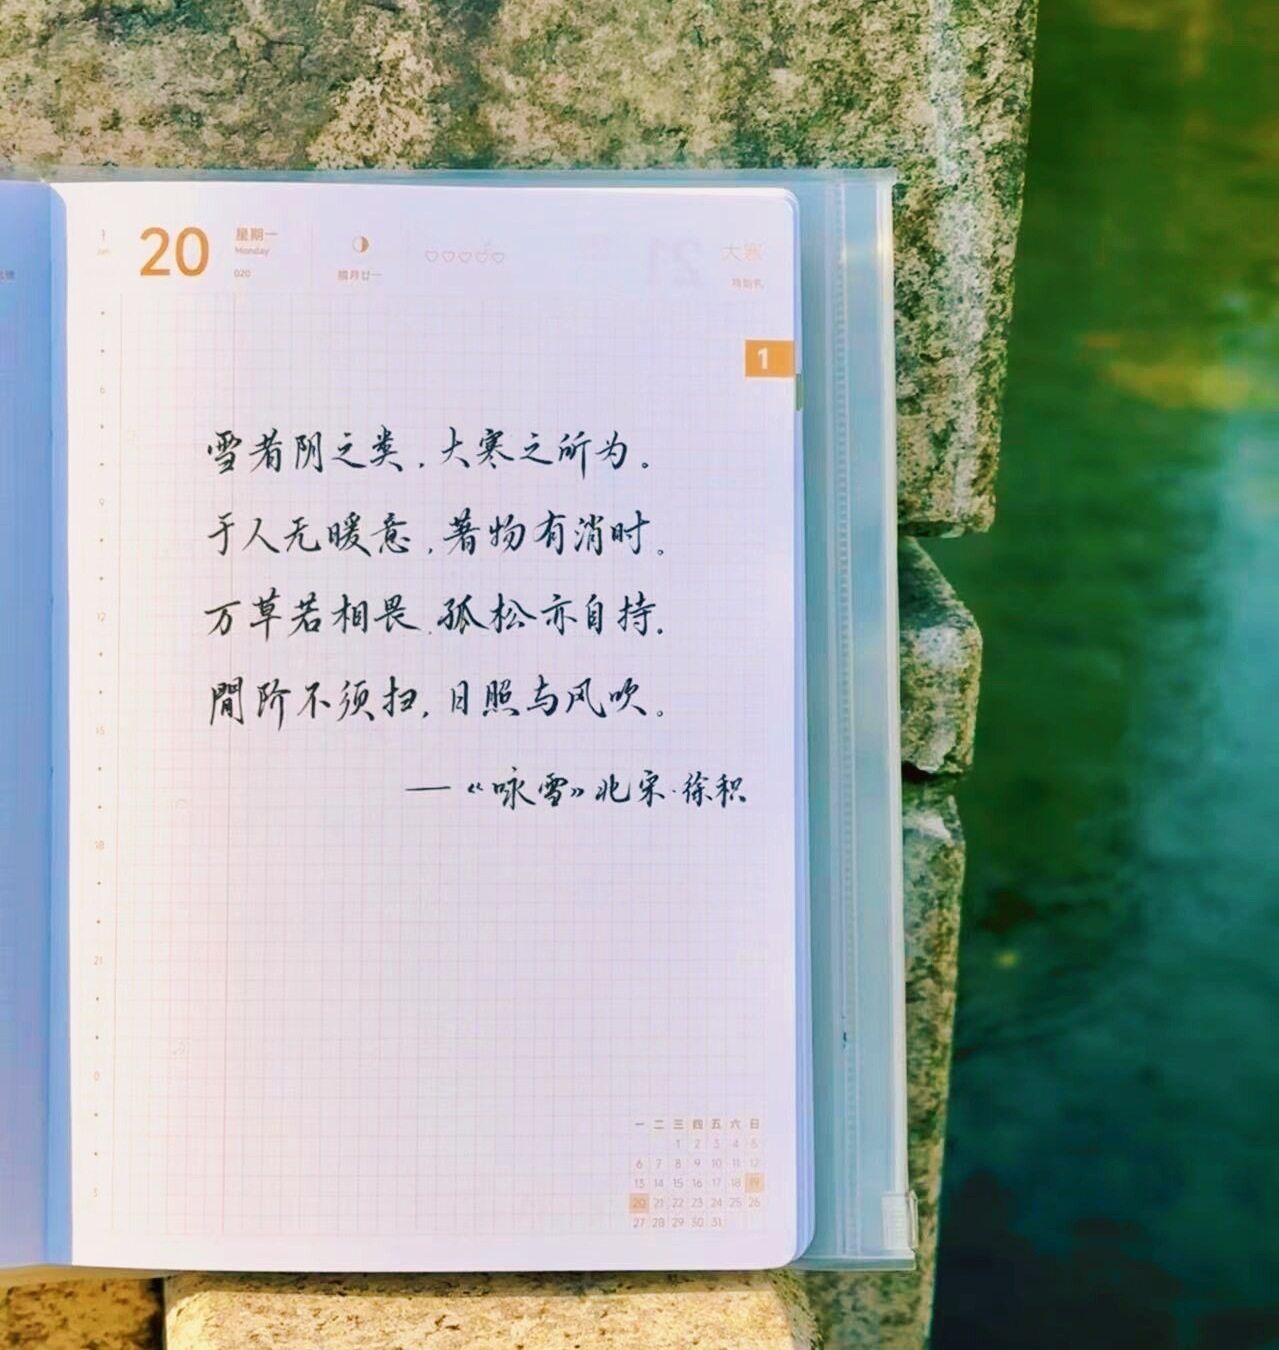 1
Jan
20
星期一
Monday
020
腊月廿一
大寒
1
6
9
12
15
18
21
0
3
雪者阴之类，大寒之所为。
于人无暖意，著物有消时。
万草若相畏，孤松亦自持。
閒阶不须扫，日照与风吹。
——《咏雪》北宋·徐积
一 二 三 四 五 六 日
1 2 3 4 5
6 7 8 9 10 11 12
13 14 15 16 17 18 19
20 21 22 23 24 25 26
27 28 29 30 31